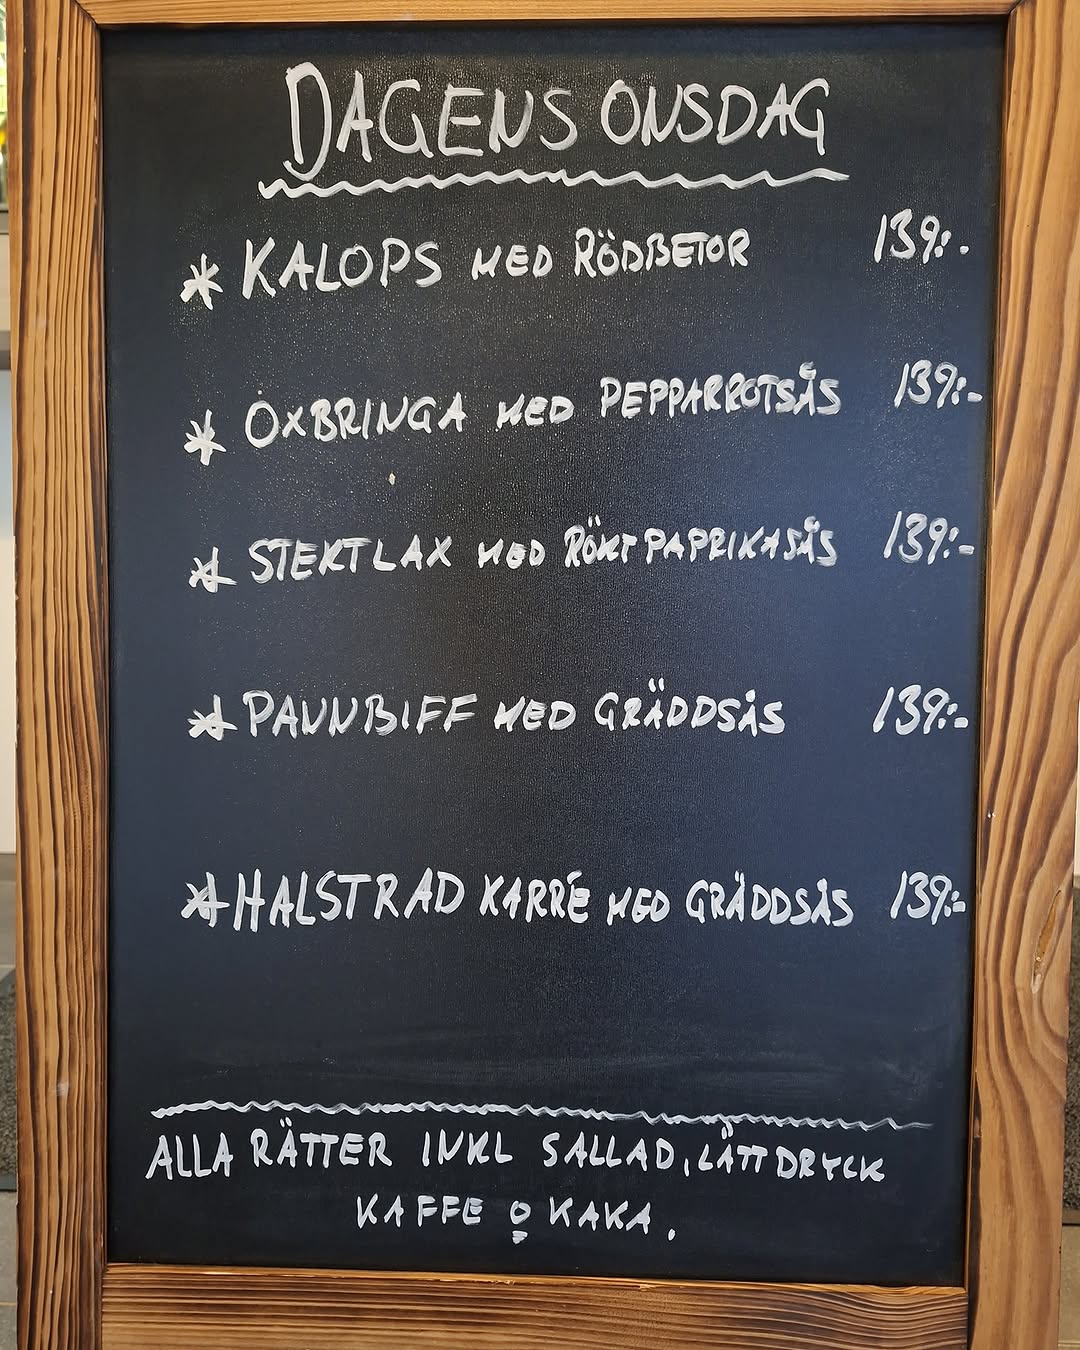 DAGENS ONSDAG
* KALOPS MED RÖDBETOR 139:-
* OXBRINGA MED PEPPARROTSÅS 139:-
* STEKT LAX MED RÖKT PAPRIKASÅS 139:-
* PANNBIFF MED GRÄDDSÅS 139:-
* HALSTRAD KARRÉ MED GRÄDDSÅS 139:-
ALLA RÄTTER INKL SALLAD, LÄTTDRYCK
KAFFE o KAKA.